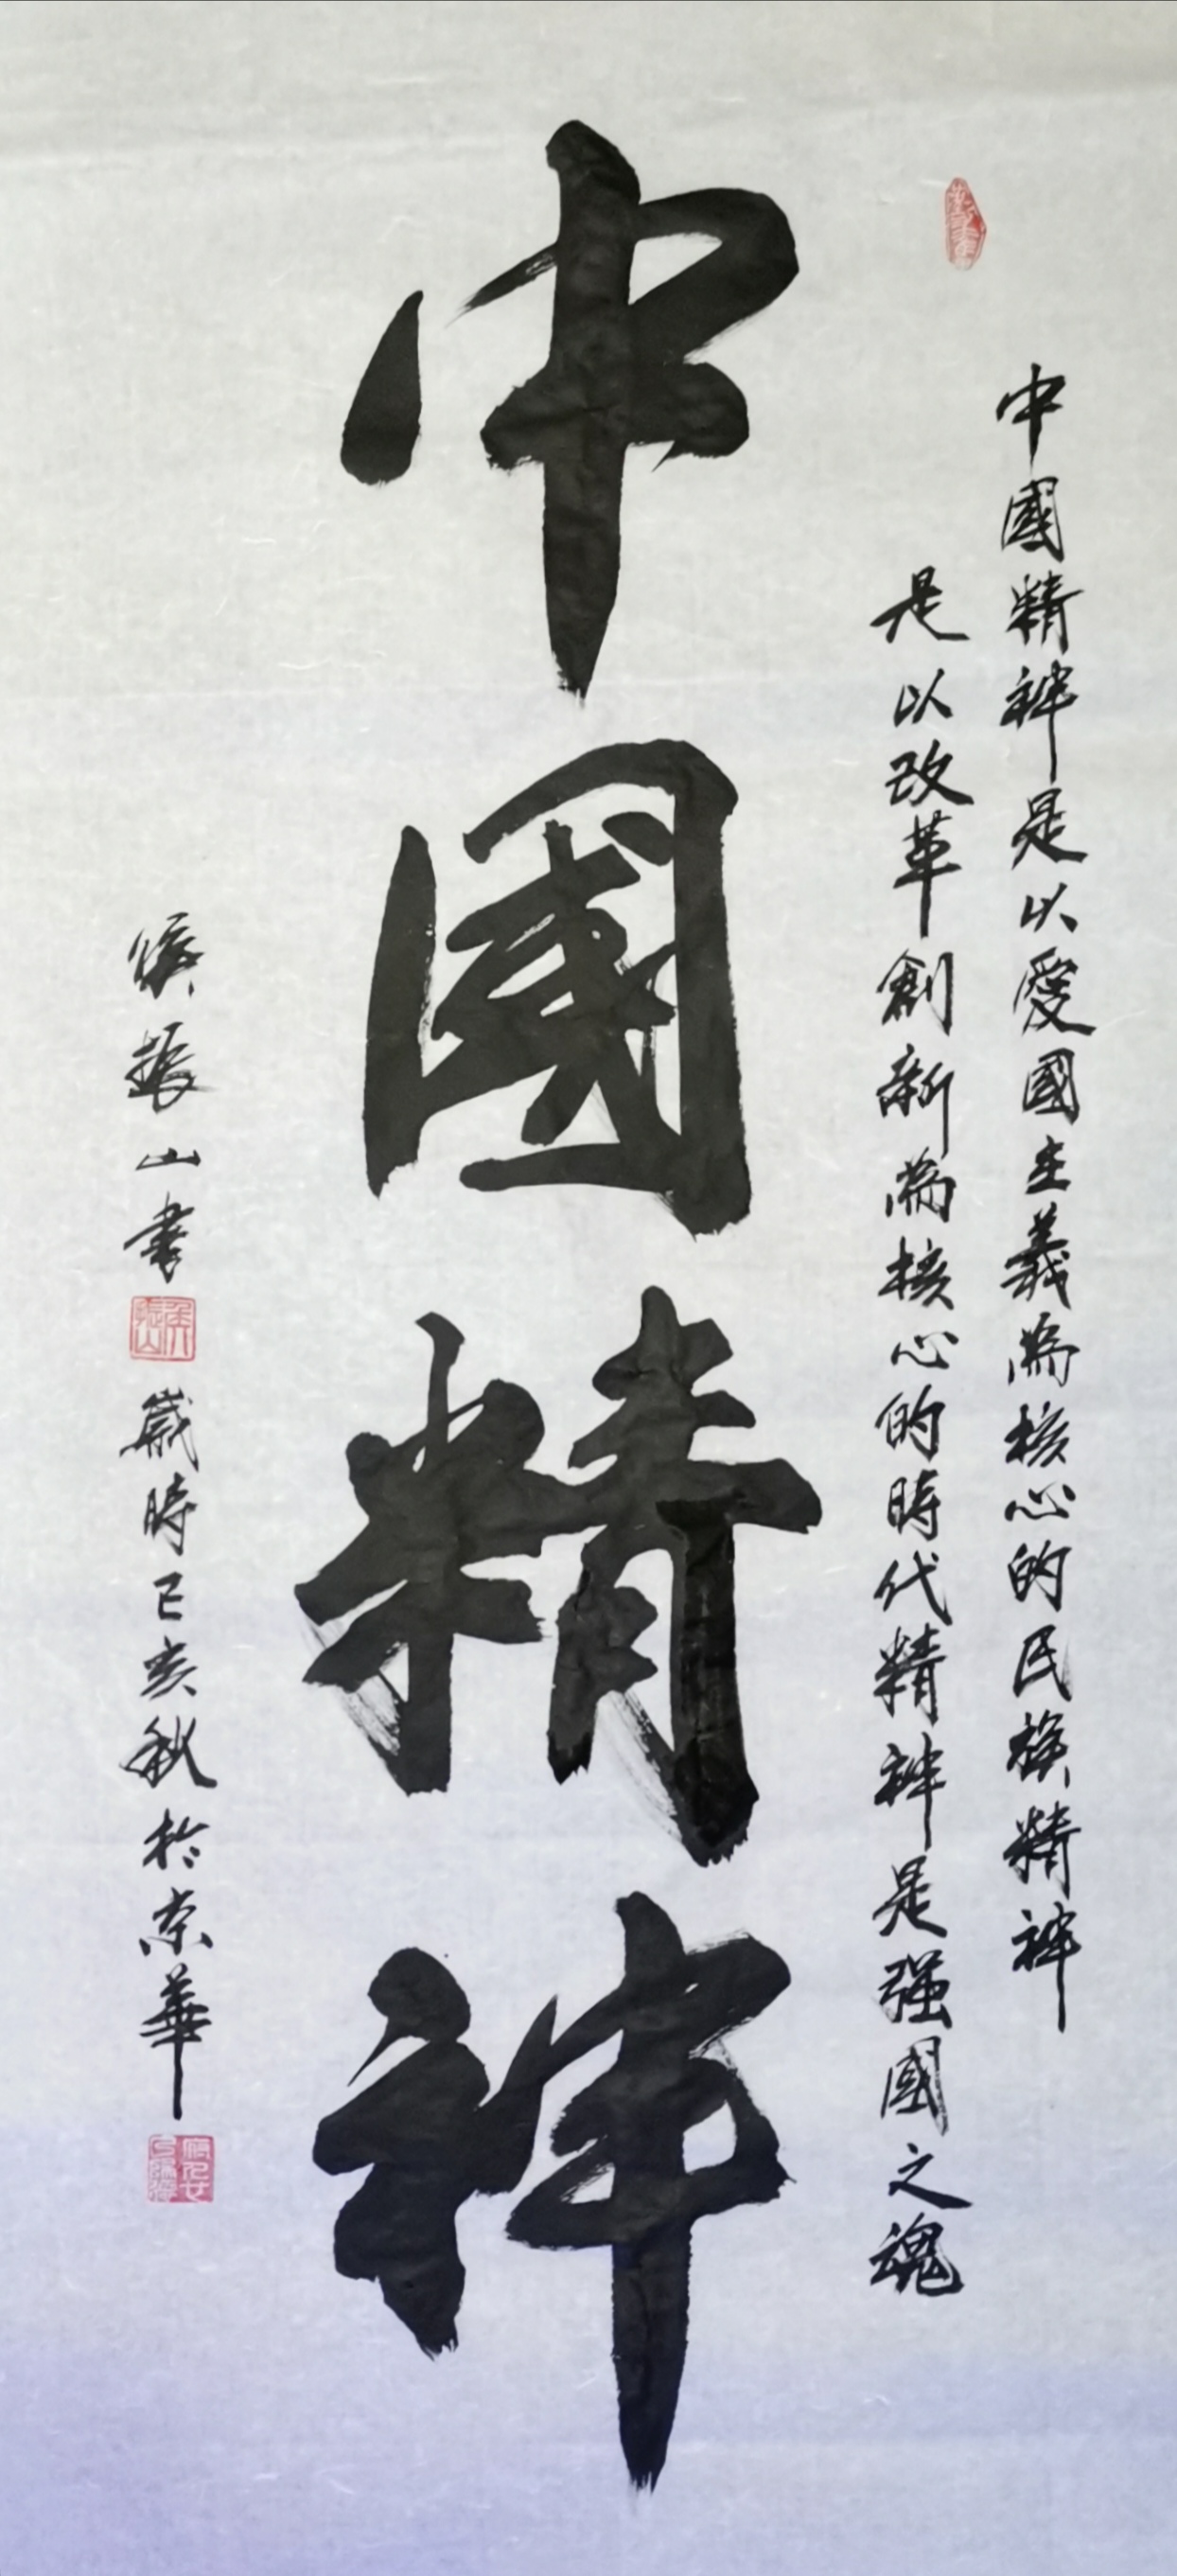 中國精神是以愛國主義為核心的民族精神
是以改革創新為核心的時代精神是强國之魂
中國精神
侯振山書
侯振山
歲時己亥秋於京華